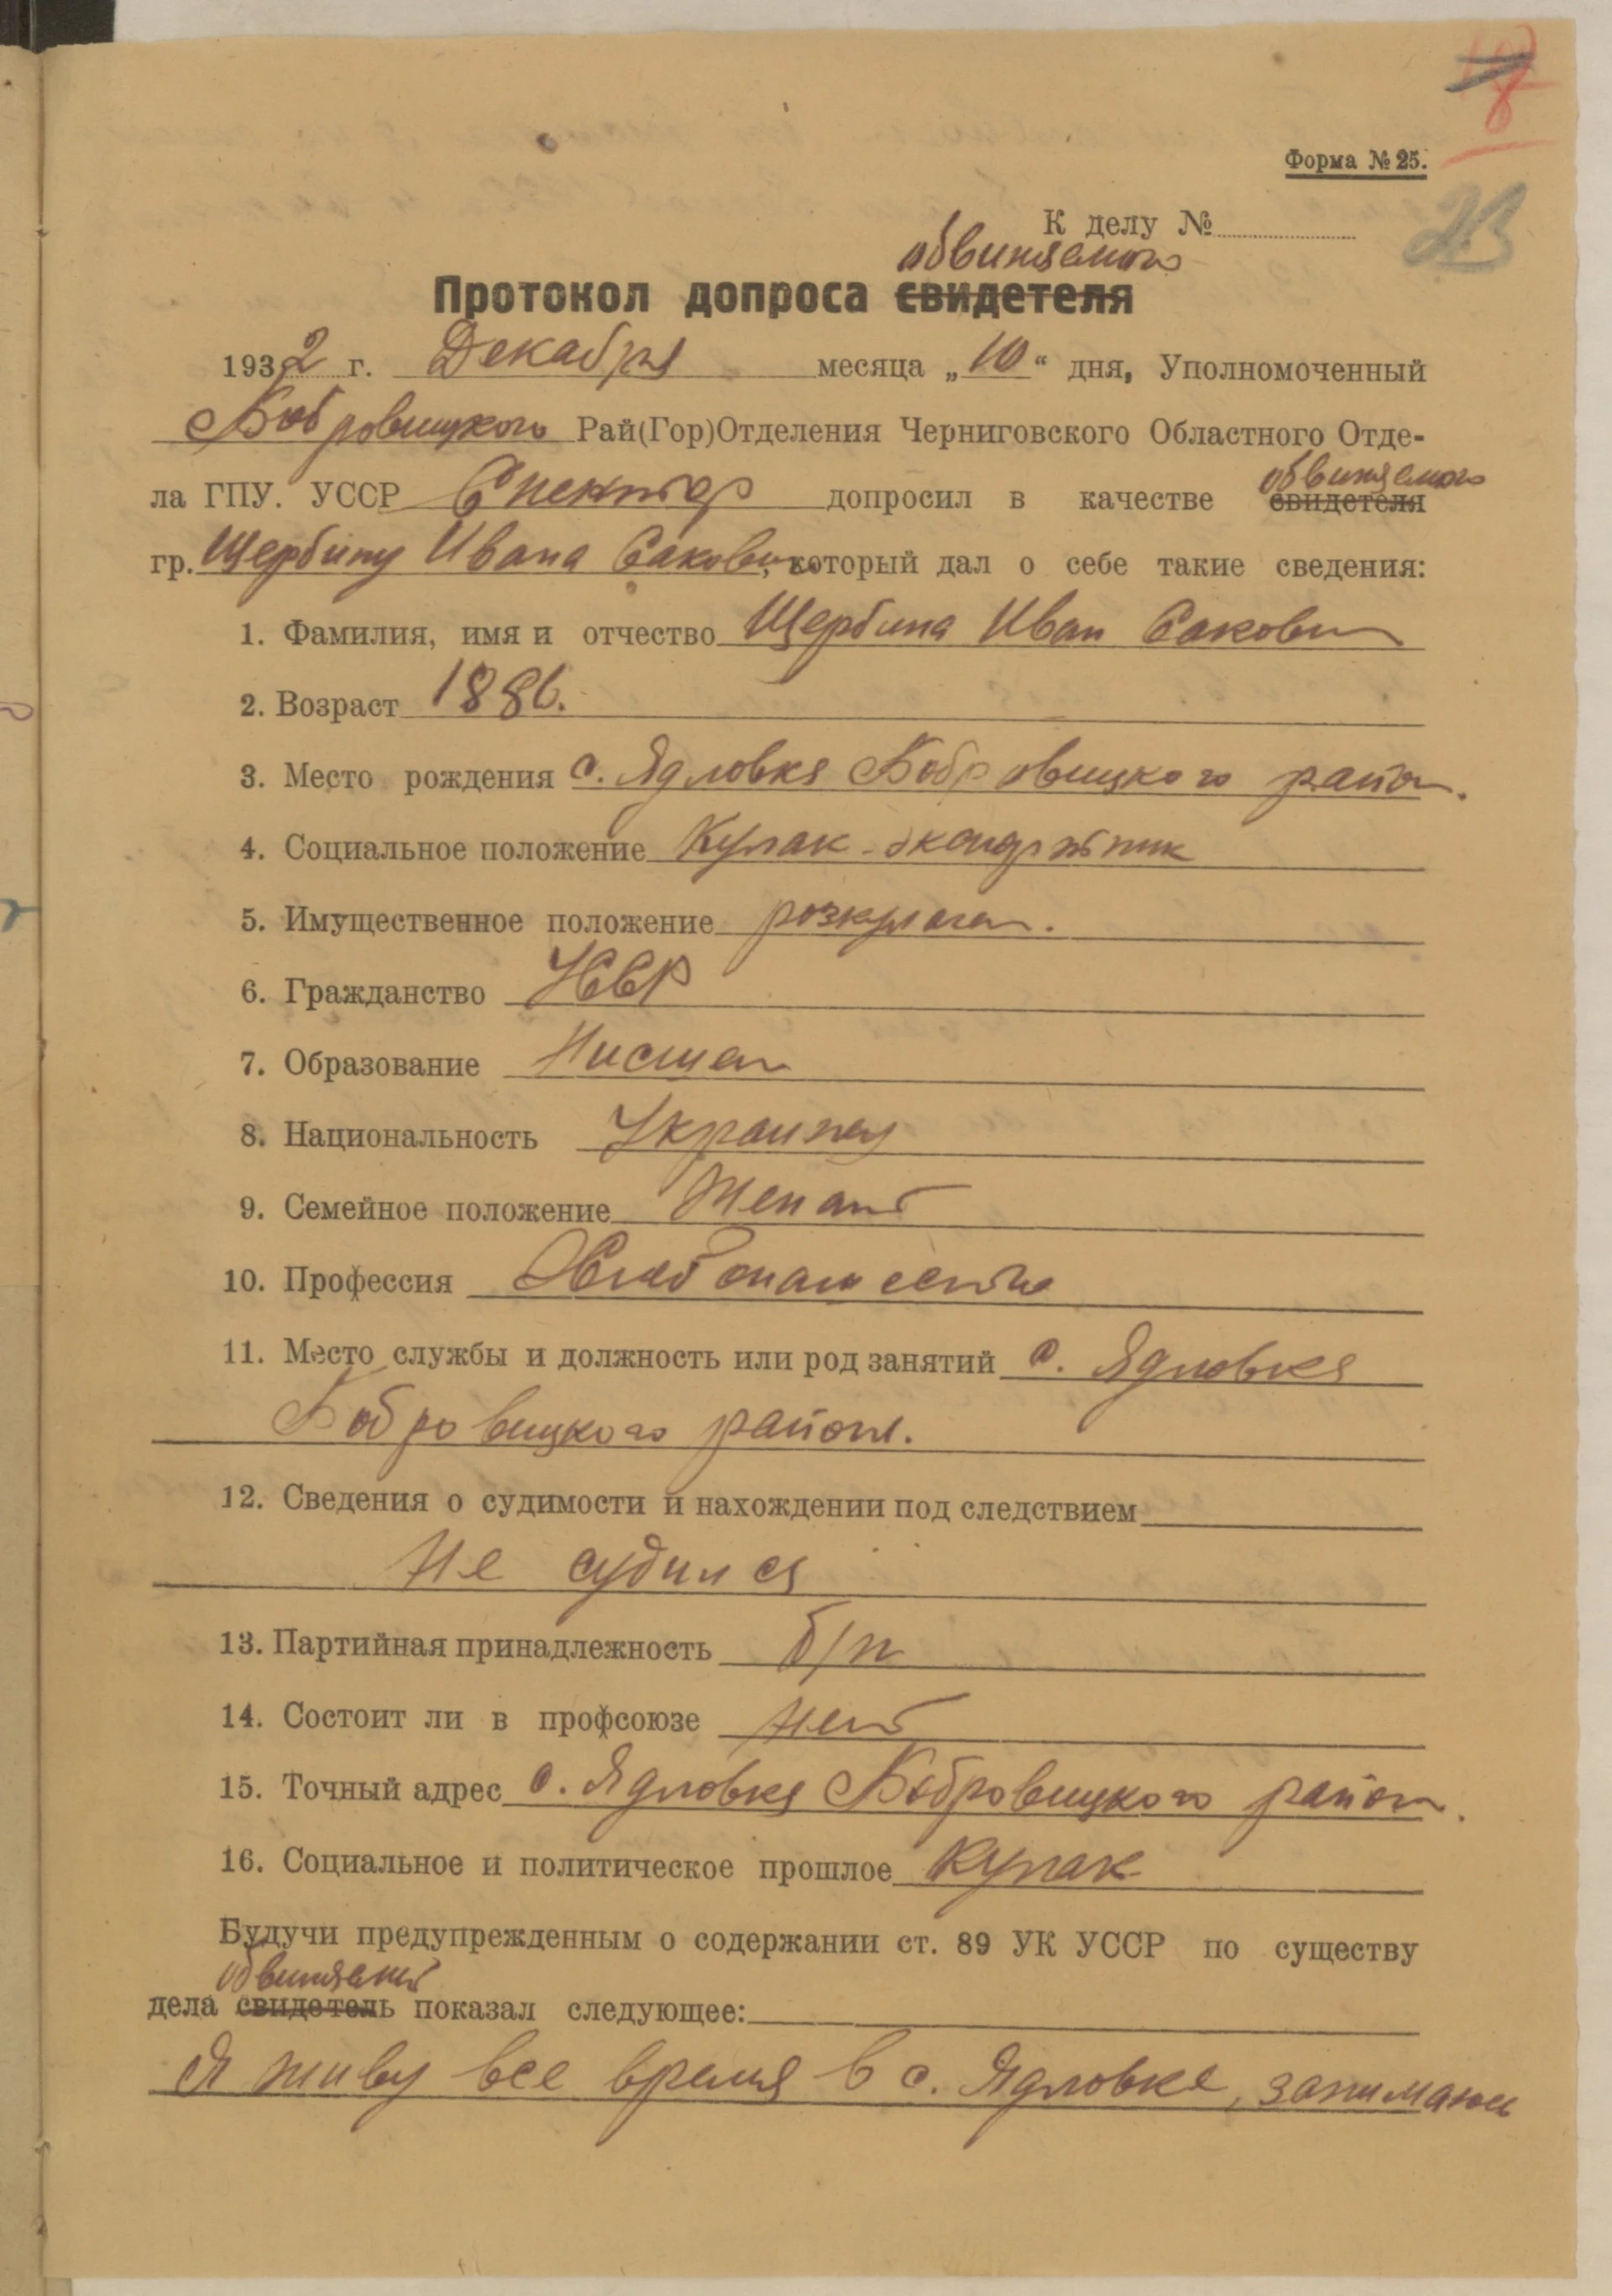 8
Форма № 25.
23
К делу №
обвиняемого
Протокол допроса свидетеля
1932 г. Декабря месяца „10“ дня, Уполномоченный
Бобровицкого Рай(Гор)Отделения Черниговского Областного Отде-
ла ГПУ. УССР Спектор допросил в качестве свидетеля обвиняемого
гр. Щербину Ивана Сакович, который дал о себе такие сведения:
1. Фамилия, имя и отчество Щербина Иван Сакович
2. Возраст 1886.
3. Место рождения с. Ядловка Бобровицкого район.
4. Социальное положение Кулак-
5. Имущественное положение розкулачен.
6. Гражданство УССР
7. Образование Нисшее
8. Национальность Украинец
9. Семейное положение Женат
10. Профессия Хлебопашество
11. Место службы и должность или род занятий с. Ядловка
Бобровицкого района.
12. Сведения о судимости и нахождении под следствием
Не судился
13. Партийная принадлежность б/п
14. Состоит ли в профсоюзе нет
15. Точный адрес с. Ядловка Бобровицкого район.
16. Социальное и политическое прошлое Кулак
Будучи предупрежденным о содержании ст. 89 УК УССР по существу
обвиняемый
дела свидетель показал следующее:
Я живу все время в с. Ядловке, занимаюсь